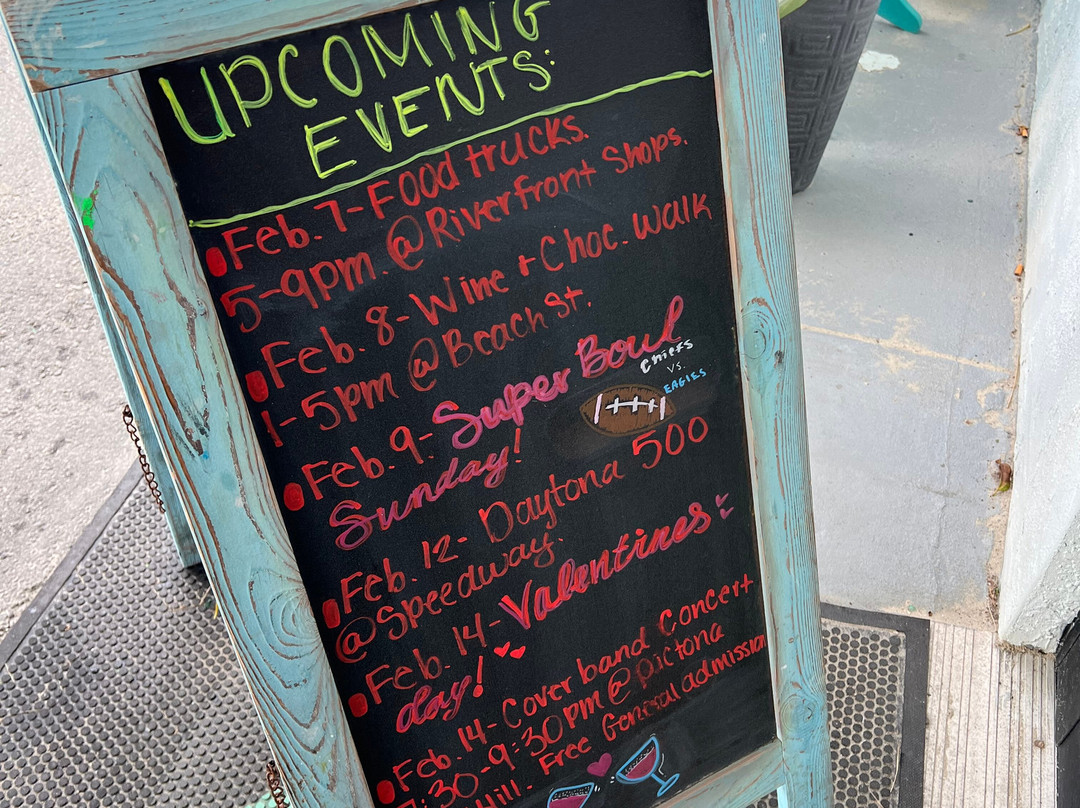 UPCOMING
EVENTS:
Feb. 7-Food trucks.
5-9pm. @Riverfront Shops.
Feb. 8- Wine + Choc. Walk
1-5pm @Beach St.
Feb. 9- Super Bowl
Sunday!
Chiefs
VS.
EAGLES
Feb. 12- Daytona 500
@Speedway.
Feb. 14-Valentines
day!
Feb. 14-Cover band Concert
7:30-9:30pm @pictona
Hill. Free General admission